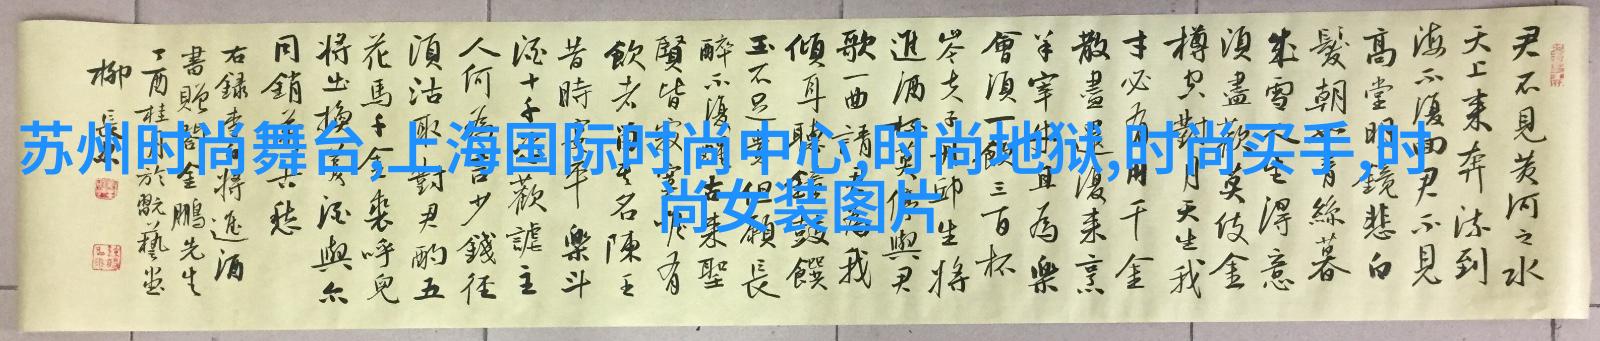 苏州时尚舞台,上海国际时尚中心,时尚地狱,时尚买手,时
尚女装图片
君不見黃河之水
天上来奔流到
海不復回君不見
高堂明鏡悲白
髮朝如青絲暮
成雪人生得意
須盡歡莫使金
樽空對月天生我
才必有用千金
散盡還復来烹
羊宰牛且為樂
會須一飲三百杯
岑夫子丹邱生將
進酒杯莫停與君
歌一曲請君為我
傾耳聽鐘鼓饌
玉不足貴但願長
醉不復醒古来聖
賢皆寂寞唯有
飲者留其名陳王
昔時宴平樂斗
酒十千恣歡謔主
人何為言少錢徑
須沽取對君酌五
花馬千金裘呼兒
將出換美酒與尔
同銷萬古愁
右録李白將進酒
書贈金鵬先生
丁酉桂月於翫藝堂
柳